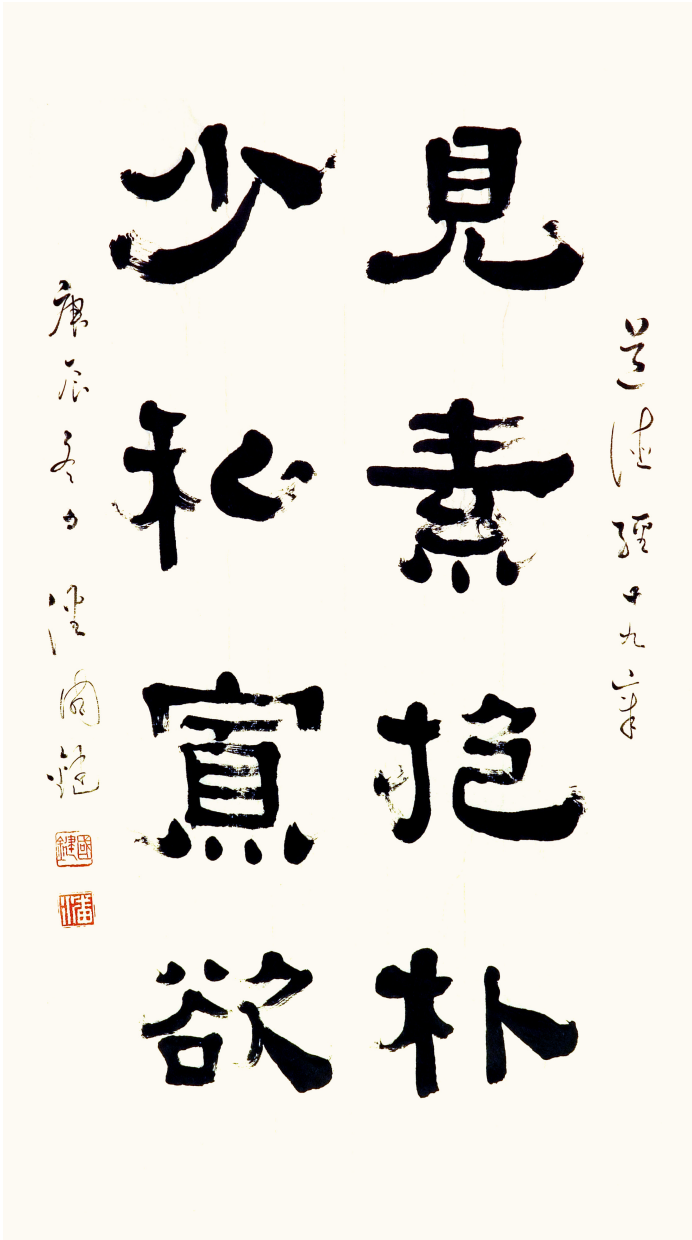 道德經十九章
見素抱朴
少私寡欲
庚辰冬日潘國鍵
國鍵
潘